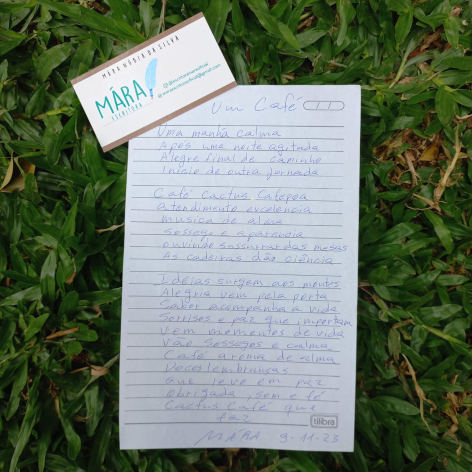 MÁRA NÚBIA DA SILVA
MÁRA
ESCRITORA
Um Café
Uma manhã calma
Após uma noite agitada
Alegre final de caminho
Início de outra jornada
Café Cactus
Atendimento excelencia
Musica de alma
Sossego e aparencia
Ouvindo sussurrar das mesas
As cadeiras dão ciência
Ideias surgem aos montes
Alegria vem pela porta
Sabor acompanha a vida
Sorrisos e paz que importam
Vem momentos de vida
Vão sossegos e calma
Café aroma de alma
Doces lembranças
Que leve em paz
Obrigada, sem e fé
Cactus Café que
faz
tilibra
MÁRA 9-11-23